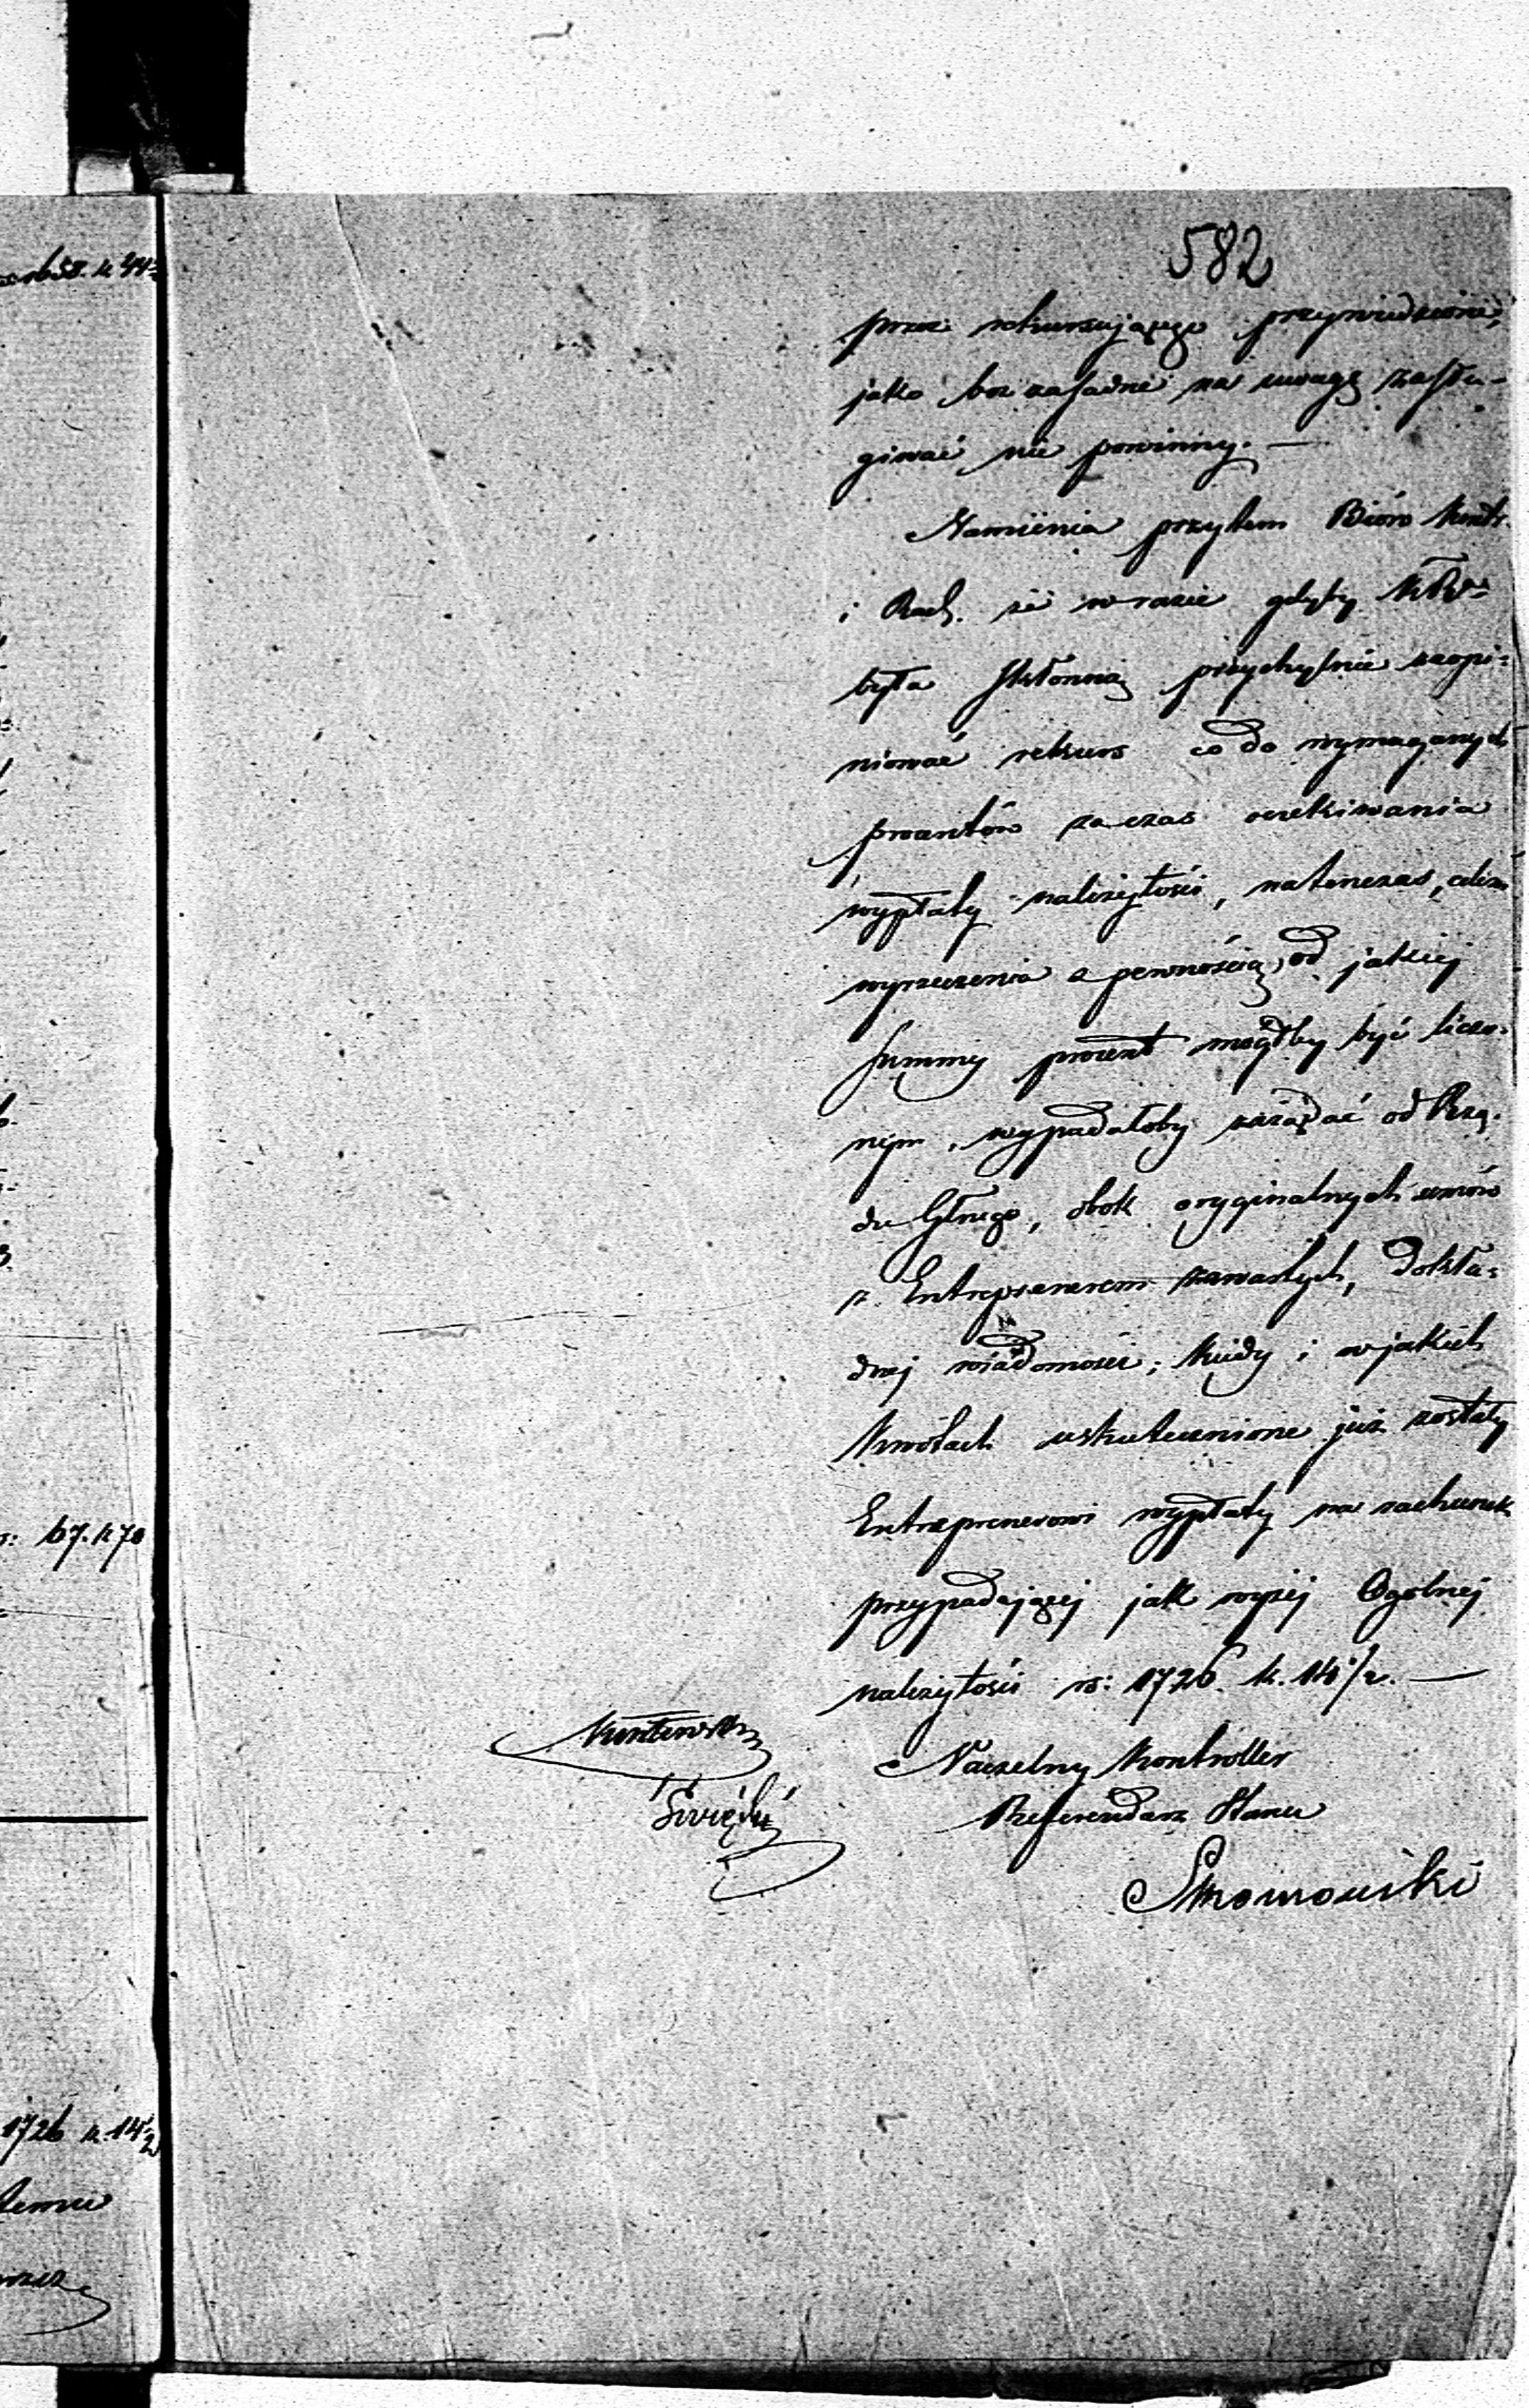 582
przez rekursującego przywiedzione,
jako bezzasadne na uwagę zasłu-
giwać nie powinny. —
Namienia przytem Bióro Kontr.
i Rach. że w razie gdyby
była skłonną przychylnie zaopi-
niować rekurs co do wymaganych
procentów za czas oczekiwania
wypłaty należytości, natenczas, celem
wyrzeczenia z pewnością, od jakiej
summy procent mógłby być liczo-
nym, wypadałoby zażądać od Rzą-
du Głnego, obok oryginalnych umów
z Entreprenerem zawartych, dokła-
dnej wiadomości; kiedy i w jakich
kwotach uskutecznione już zostały
Entreprenerowi wypłaty na rachunek
przypadającej jak wyżej Ogólnej
należytości rs: 1726. k. 14 1/2. —
Naczelny Kontroller
Referendarz Stanu
rs: 67. k 70
1726 k. 14 1/2